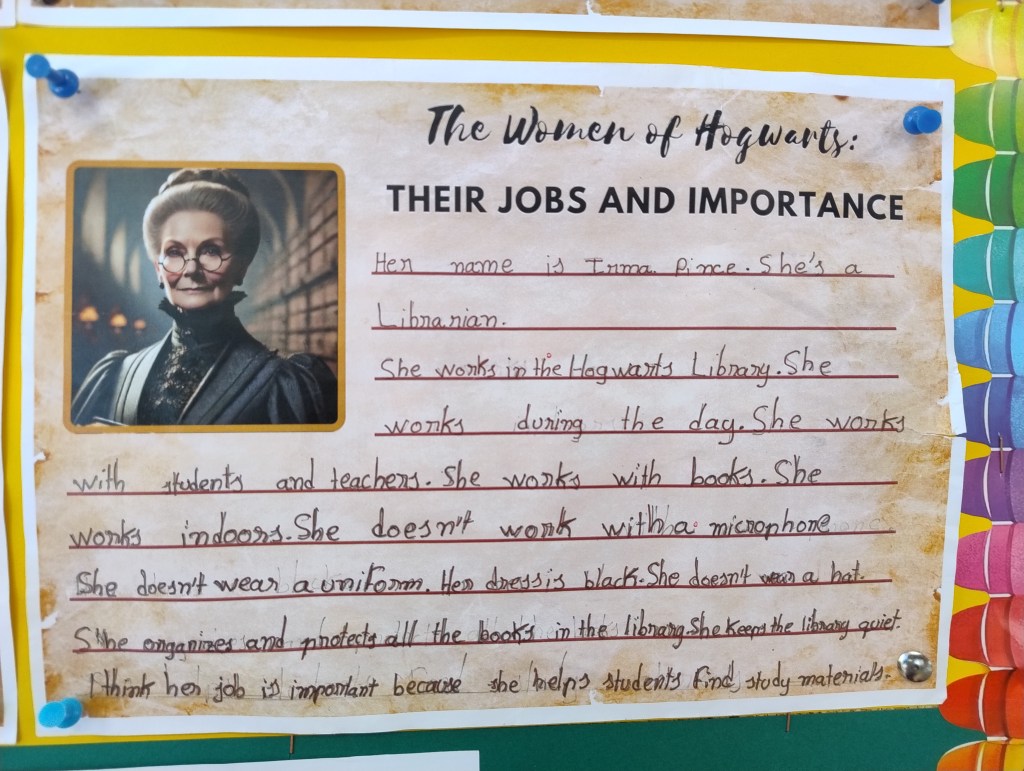 The Women of Hogwarts:
THEIR JOBS AND IMPORTANCE
Her name is Irma Pince. She's a
Librarian.
She works in the Hogwarts Library. She
works during the day. She works
with students and teachers. She works with books. She
works indoors. She doesn't work with a microphone
She doesn't wear a uniform. Her dress is black. She doesn't wear a hat.
She organizes and protects all the books in the library. She keeps the library quiet.
I think her job is important because she helps students find study materials.